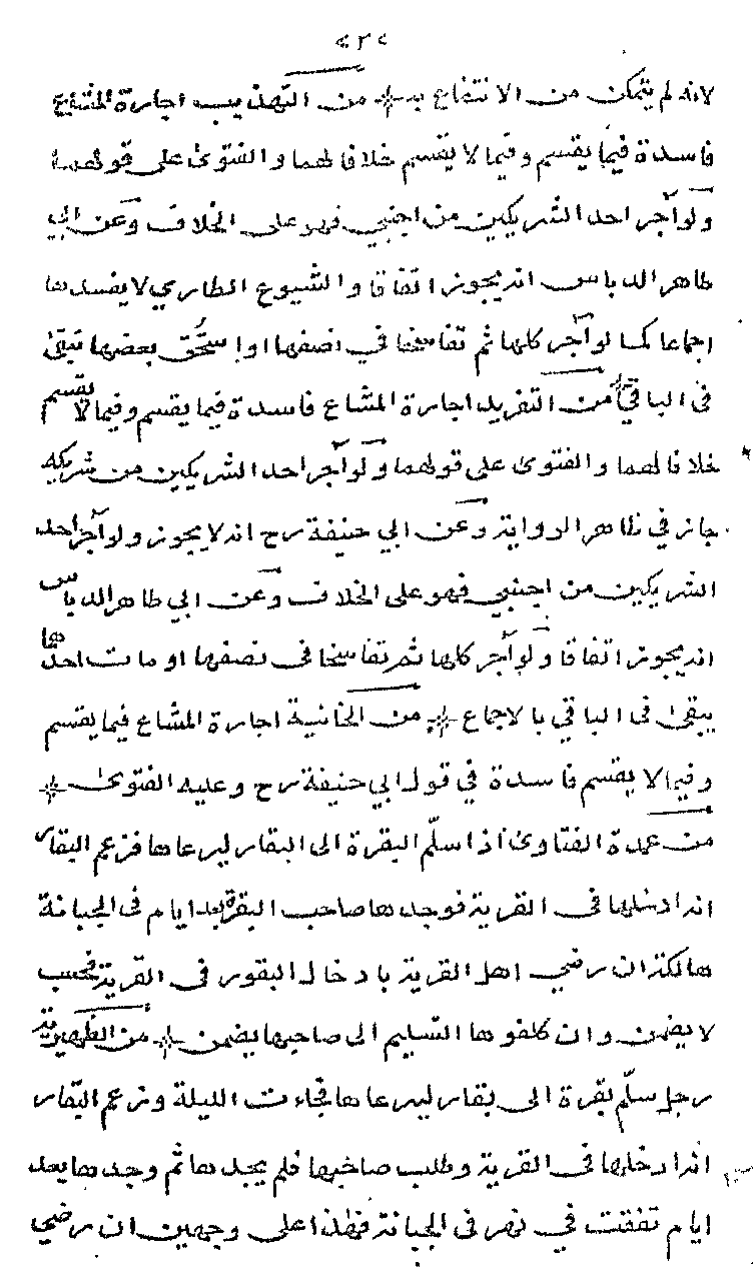 لانه لم يتمكن من الانتفاع به من التهذيب اجارة المشيع
فاسدة فيما يقسم وفيما لا يقسم خلافا لهما والفتوى على قولهما
ولو آجر احد الشريكين من اجنبي فهو على الخلاف وعن ابي
طاهر الدباس انه يجوز اتفاقا والشيوع الطاري لا يفسدها
اجماعا كما لو آجر كلها ثم تفاسخا في نصفها او استحق بعضها تبقى
في الباقي من التفريد اجارة المشاع فاسدة فيما يقسم وفيما لا يقسم
خلافا لهما والفتوى على قولهما ولو آجر احد الشريكين من شريكه
جاز في ظاهر الرواية وعن ابي حنيفة رح انه لا يجوز ولو آجر احد
الشريكين من اجنبي فهو على الخلاف وعن ابي طاهر الدباس
انه يجوز اتفاقا ولو آجر كلها ثم تفاسخا في نصفها او مات احدهما
يبقى في الباقي بالاجماع من الخانية اجارة المشاع فيما يقسم
وفيما لا يقسم فاسدة في قول ابي حنيفة رح وعليه الفتوى
من عمدة الفتاوى اذا سلّم البقرة الى البقار ليرعاها فزعم البقار
انه ادخلها في القرية فوجدها صاحب البقرة بعد ايام في الجبانة
هالكة ان رضي اهل القرية بادخال البقور في القرية فحسب
لا يضمن وان كلفوها التسليم الى صاحبها يضمن من الظهيرية
رجل سلّم بقرة الى بقار ليرعاها فجاءت الليلة وزعم البقار
انه ادخلها في القرية وطلب صاحبها فلم يجدها ثم وجدها بعد
ايام تفقت في نهر في الجبانة فهذا على وجهين ان رضي